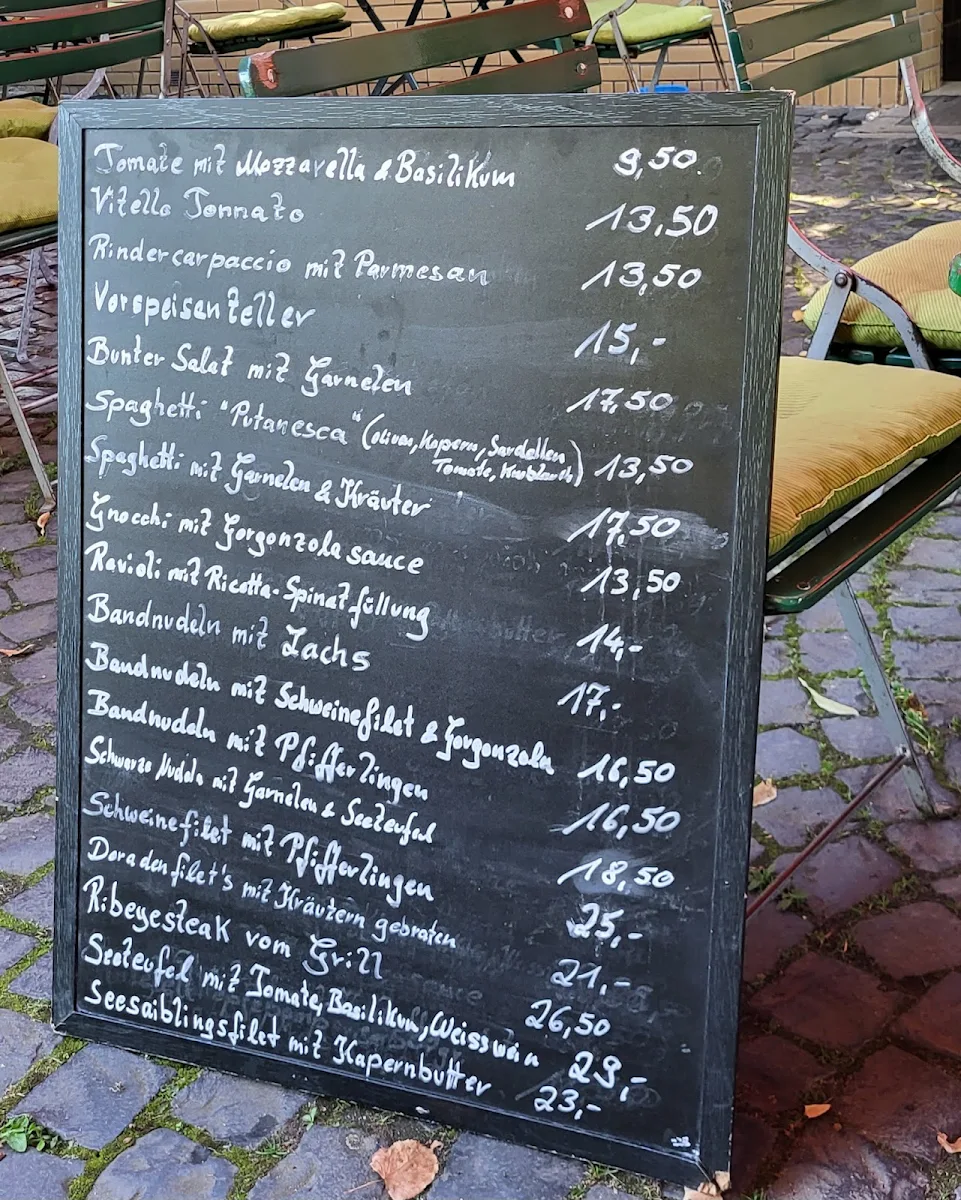 Tomate mit Mozzarella & Basilikum 9,50.
Vitello Tonnato 13,50
Rindercarpaccio mit Parmesan 13,50
Vorspeisenteller 15,-
Bunter Salat mit Garnelen 17,50
Spaghetti "Putanesca" (Oliven, Kapern, Sardellen
Tomate, Knoblauch) 13,50
Spaghetti mit Garnelen & Kräuter 17,50
Gnocchi mit Gorgonzolasauce 13,50
Ravioli mit Ricotta-Spinatfüllung 14,-
Bandnudeln mit Lachs 17,-
Bandnudeln mit Schweinefilet & Gorgonzola 16,50
Bandnudeln mit Pfifferlingen 16,50
Schwarze Nudeln mit Garnelen & Seeteufel 18,50
Schweinefilet mit Pfifferlingen 25,-
Doradenfilet's mit Kräutern gebraten 21,-
Ribeyesteak vom Grill 26,50
Seeteufel mit Tomate, Basilikum, Weisswein 29,-
Seesaiblingsfilet mit Kapernbutter 23,-